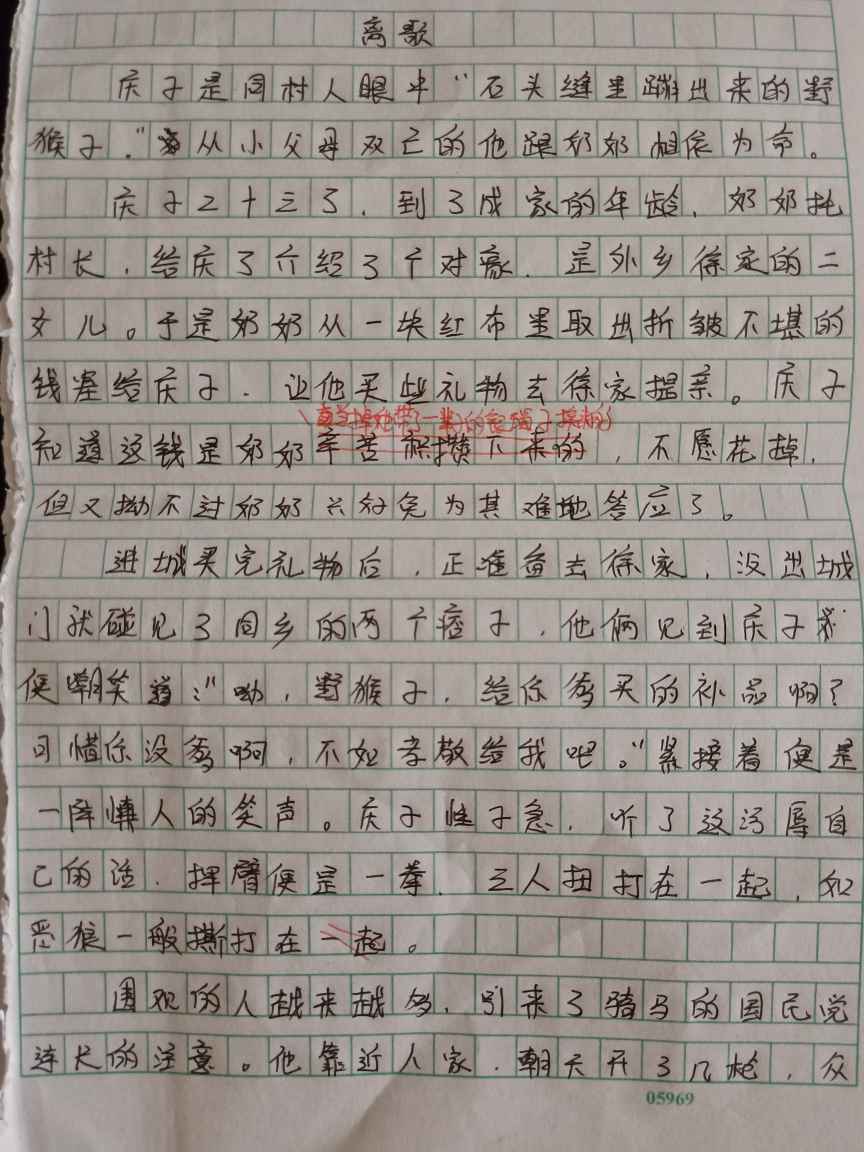 离歌
庆子是同村人眼中“石头缝里蹦出来的野
猴子.”从小父母双亡的他跟奶奶相依为命。
庆子二十三了，到了成家的年龄，奶奶托
村长，给庆子介绍了个对象，是外乡徐家的二
女儿。于是奶奶从一块红布里取出折皱不堪的
钱塞给庆子，让他买些礼物去徐家提亲。庆子
直当掉她带了一辈子的银镯子换来的
知道这钱是奶奶辛苦积攒下来的，不愿花掉，
但又拗不过奶奶只好免为其难地答应了。
进城买完礼物后，正准备去徐家，没出城
门就碰见了同乡的两个痞子，他俩见到庆子
便嘲笑道：“呦，野猴子，给你爹买的补品啊？
可惜你没爹啊，不如孝敬给我吧。”紧接着便是
一阵人的笑声。庆子性子急，听了这污辱自
己的话，挥臂便是一拳，三人扭打在一起，如
恶狼一般撕打在一起。
围观的人越来越多，引来了骑马的国民党
连长的注意。他靠近人家，朝天开了几枪，众
05969